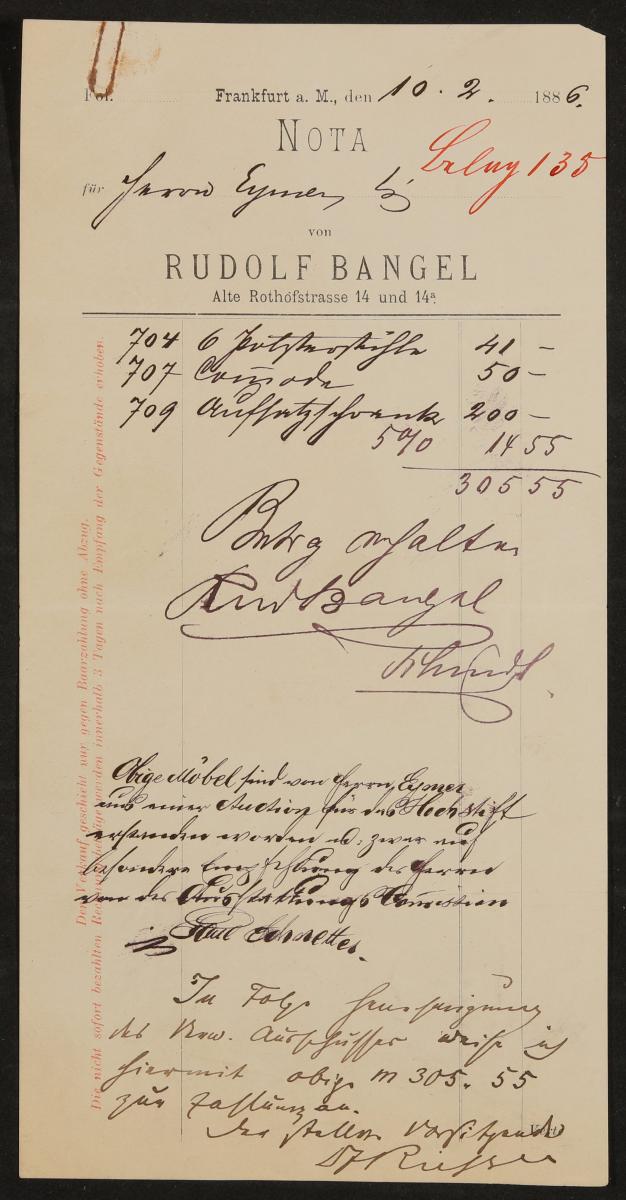 Fol. Frankfurt a. M., den 10. 2. 1886.
NOTA
Beleg 135
für Herrn Eymer
von
RUDOLF BANGEL
Alte Rothofstrasse 14 und 14a.
704 6 Polsterstühle 41 –
707 Commode 50 –
709 Aufsatzschrank 200 –
5% 14 55
305 55
Betrag erhalten
Rud Bangel
Schmidt
Obige Möbel sind von Herrn Eymer
aus einer Auction für das Hochstift
erstanden worden u. zwar auf
besondere Empfehlung der Herren
von der Ausstattungs Comission
Paul Schnetter.
In Folge Genehmigung
des Verw. Ausschusses weise ich
hiermit obige M 305. 55
zur Zahlung an.
Der stellv. Vorsitzende
Der Verkauf geschieht nur gegen Baarzahlung ohne Abzug.
Die nicht sofort bezahlten Rechnungsbeträge werden innerhalb 3 Tagen nach Empfang der Gegenstände erhoben.